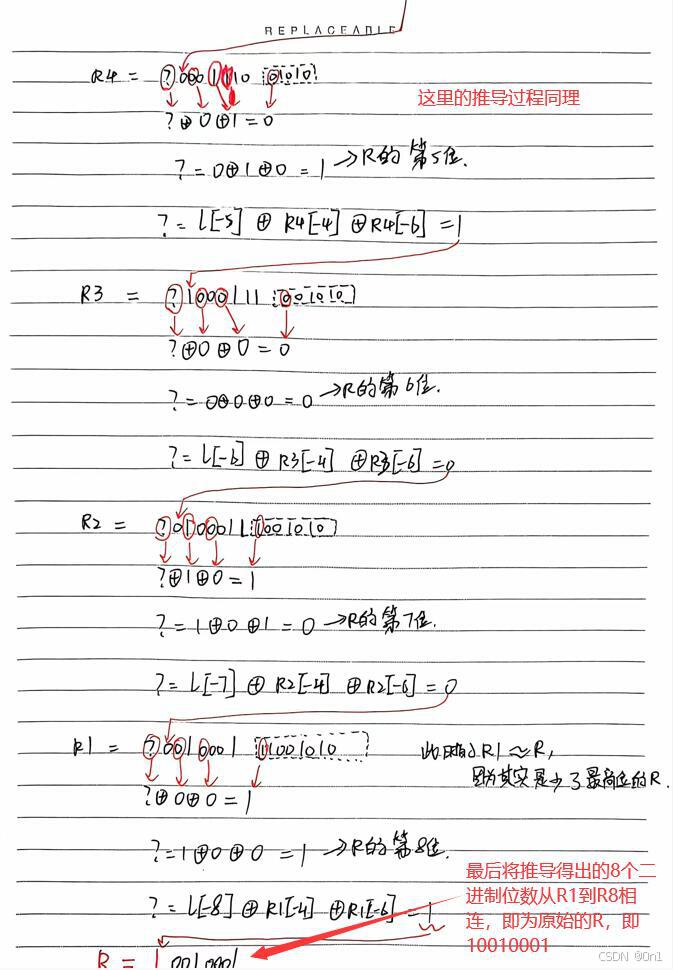 REPLACEABLE
R4 = ?0001110 0010
这里的推导过程同理
?⊕0⊕1=0
?=0⊕1⊕0=1→R的第5位.
?=L[-5]⊕R4[-4]⊕R4[-6]=1
R3 = ?1000111 00010
?⊕0⊕0=0
?=0⊕0⊕0=0→R的第6位.
?=L[-6]⊕R3[-4]⊕R3[-6]=0
R2 = ?0100011 100101
?⊕1⊕0=1
?=1⊕0⊕1=0→R的第7位.
?=L[-7]⊕R2[-4]⊕R2[-6]=0
R1 = ?0010001 1100101
此时R1≈R,
因为其实是少了最高位的R.
?⊕0⊕0=1
?=1⊕0⊕0=1→R的第8位.
最后将推导得出的8个二
进制位数从R1到R8相
连，即为原始的R，即
10010001
?=L[-8]⊕R1[-4]⊕R1[-6]=1
R=10010001
CSDN @0n1